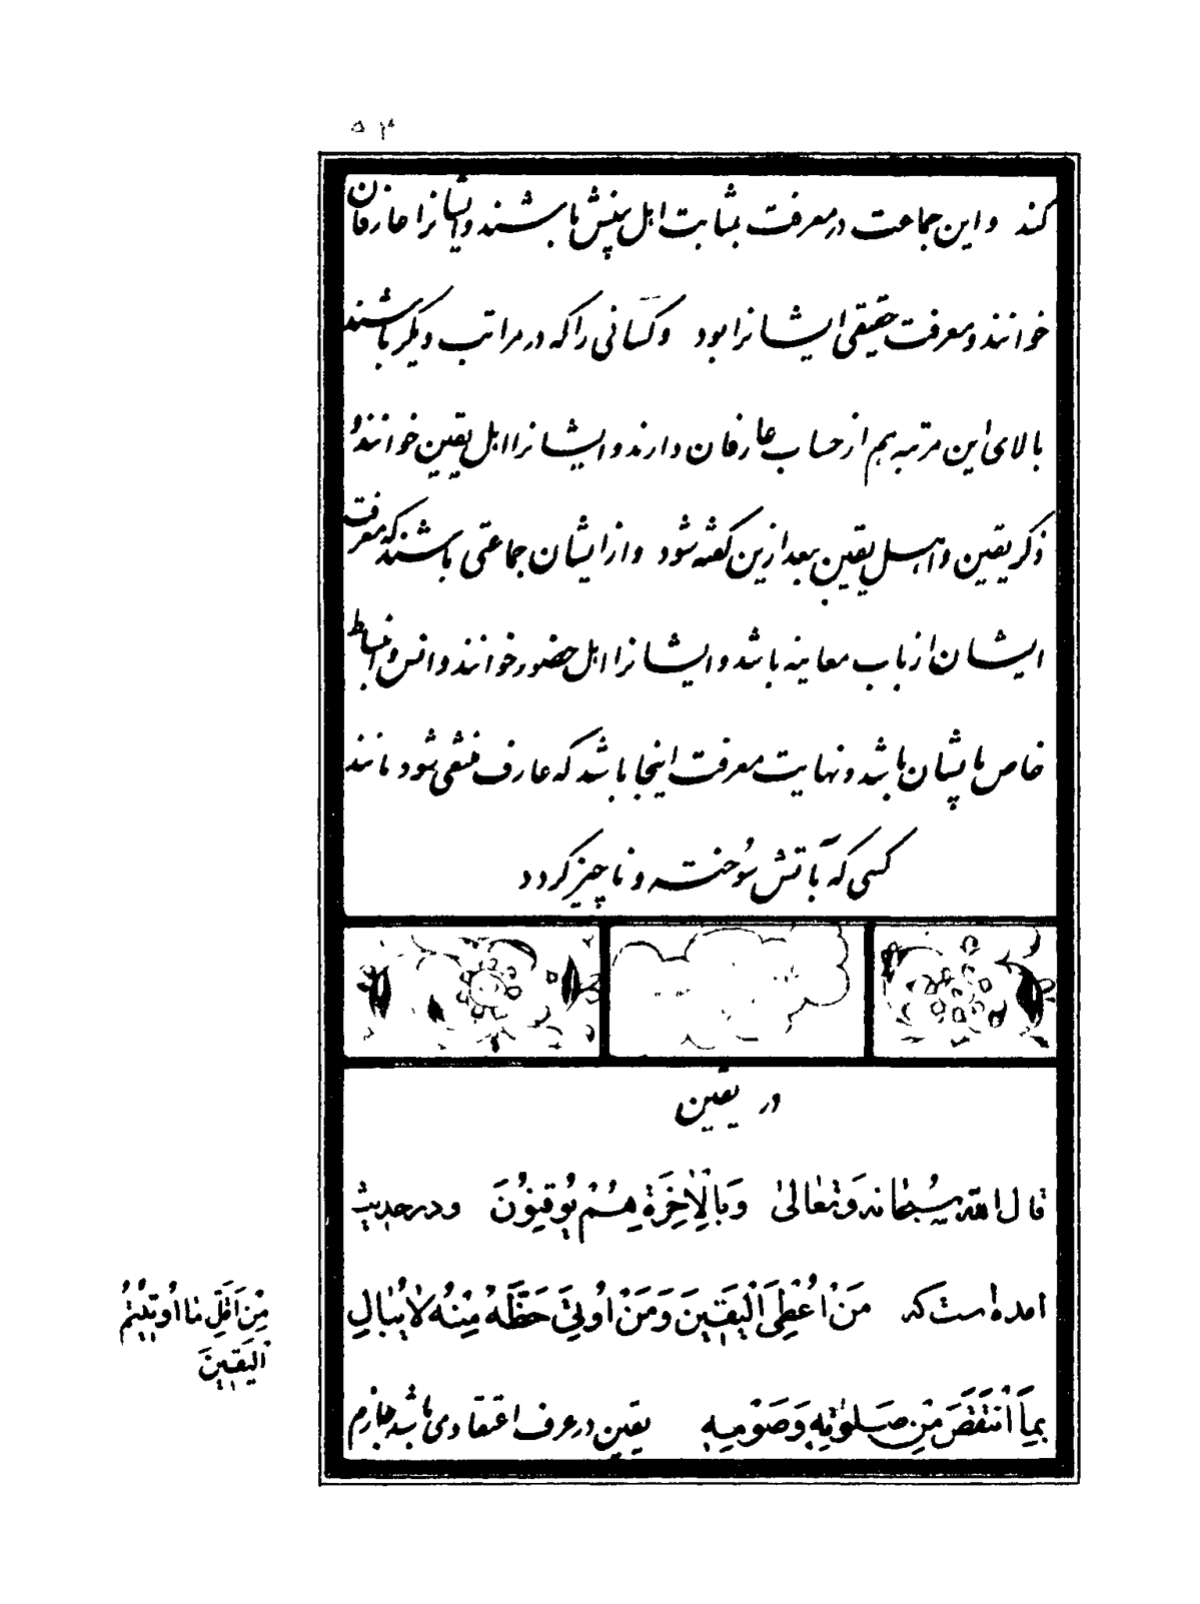 ۵۴
کند و این جماعت در معرفت بمثابت اهل بینش باشند و ایشانرا عارفان
خوانند و معرفت حقیقی ایشانرا بود و کسانی را که در مراتب دیگر باشند
بالای این مرتبه هم از حساب عارفان دارند و ایشانرا اهل یقین خوانند و
ذکر یقین و اهل یقین بعد ازین گفته شود و از ایشان جماعتی باشند که معرفت
ایشان از باب معاینه باشد و ایشانرا اهل حضور خوانند و انس و انبساط
خاص بایشان باشد و نهایت معرفت اینجا باشد که عارف منتفی شود مانند
کسی که بآتش سوخته و ناچیز گردد
در یقین
قال الله سبحانه وَتعَالىٰ وَبِالْاٰخِرَةِ هُمْ يُوقِنُونَ و در حدیث
امده است که مَنْ اُعْطِىَ الْيَقينَ وَمَنْ اُوتِىَ حَظَّهُ مِنْهُ لاٰيُبٰالِ
بِمَا انْتَقَصَ مِنْ صَلوٰتِهِ وَصَوْمِهِ یقین در عرف اعتقادی باشد جازم
مِنْ اَقَلِّ مٰا اُوتيٖتُمُ
اليَقينَ